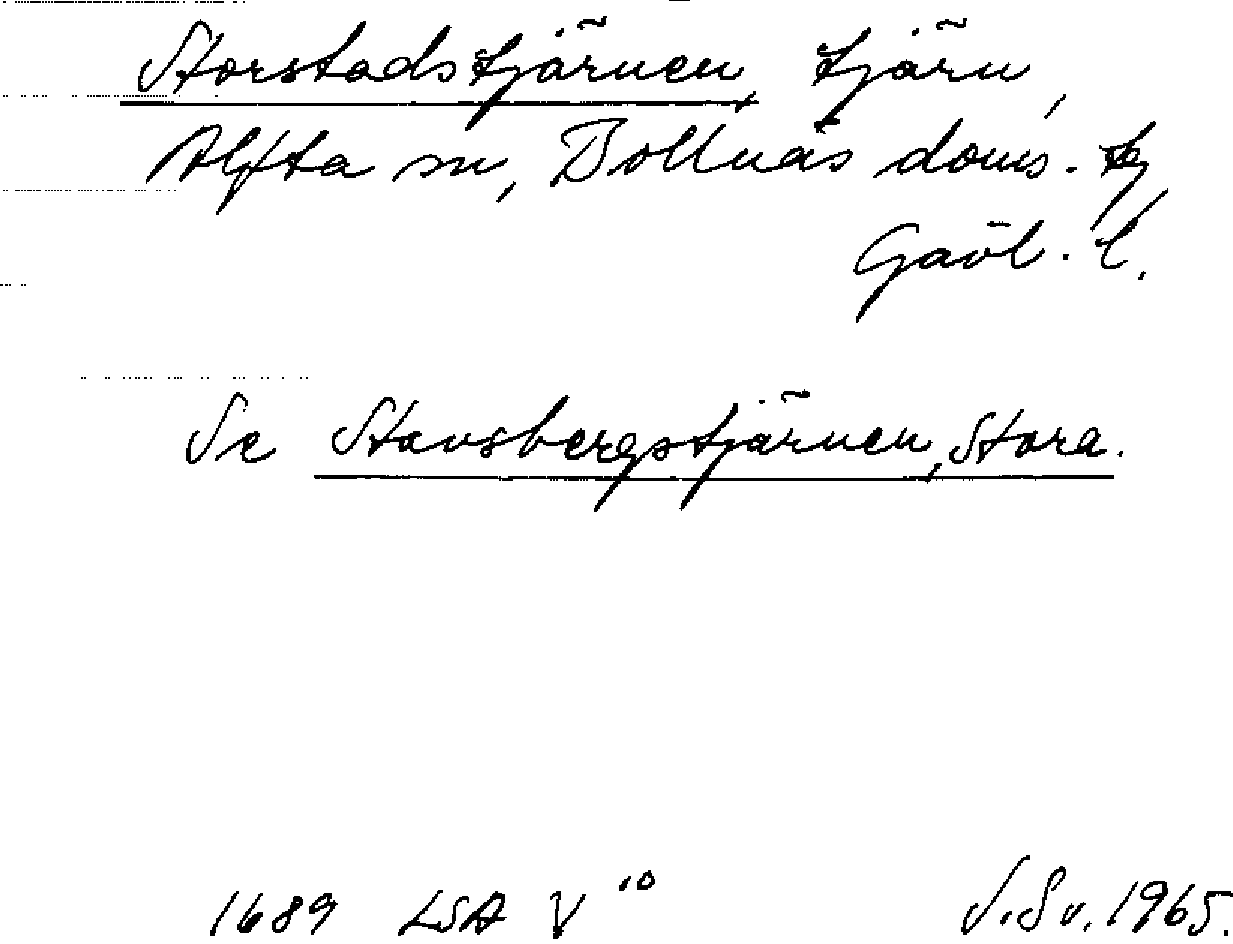 Storstadstjärnen, tjärn,
Alfta sn, Bollnäs doms.
Gävl. l.
Se Stavsbergstjärnen, Stora.
1689 LSA V 10 S.Sv. 1965.